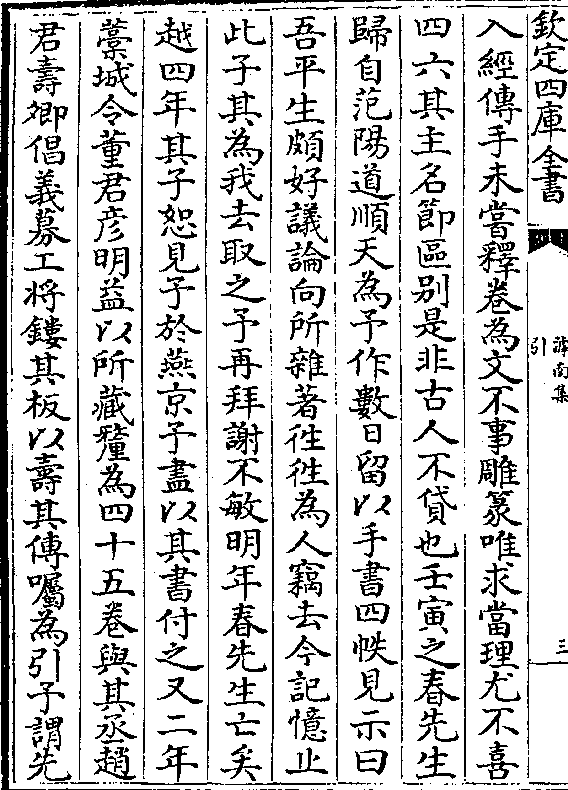 欽定四庫全書
滹南集
引
三
入經傳手未嘗釋卷為文不事雕篆唯求當理尤不喜
四六其主名節區别是非古人不貸也壬寅之春先生
歸自范陽道順天為予作數日留以手書四帙見示曰
吾平生頗好議論向所雜著徃徃為人竊去今記憶止
此子其為我去取之予再拜謝不敏明年春先生亡矣
越四年其子恕見予於燕京予盡以其書付之又二年
藁城令董君彦明益以所藏釐為四十五卷與其丞趙
君壽卿倡義募工将鏤其板以壽其傳囑為引予謂先